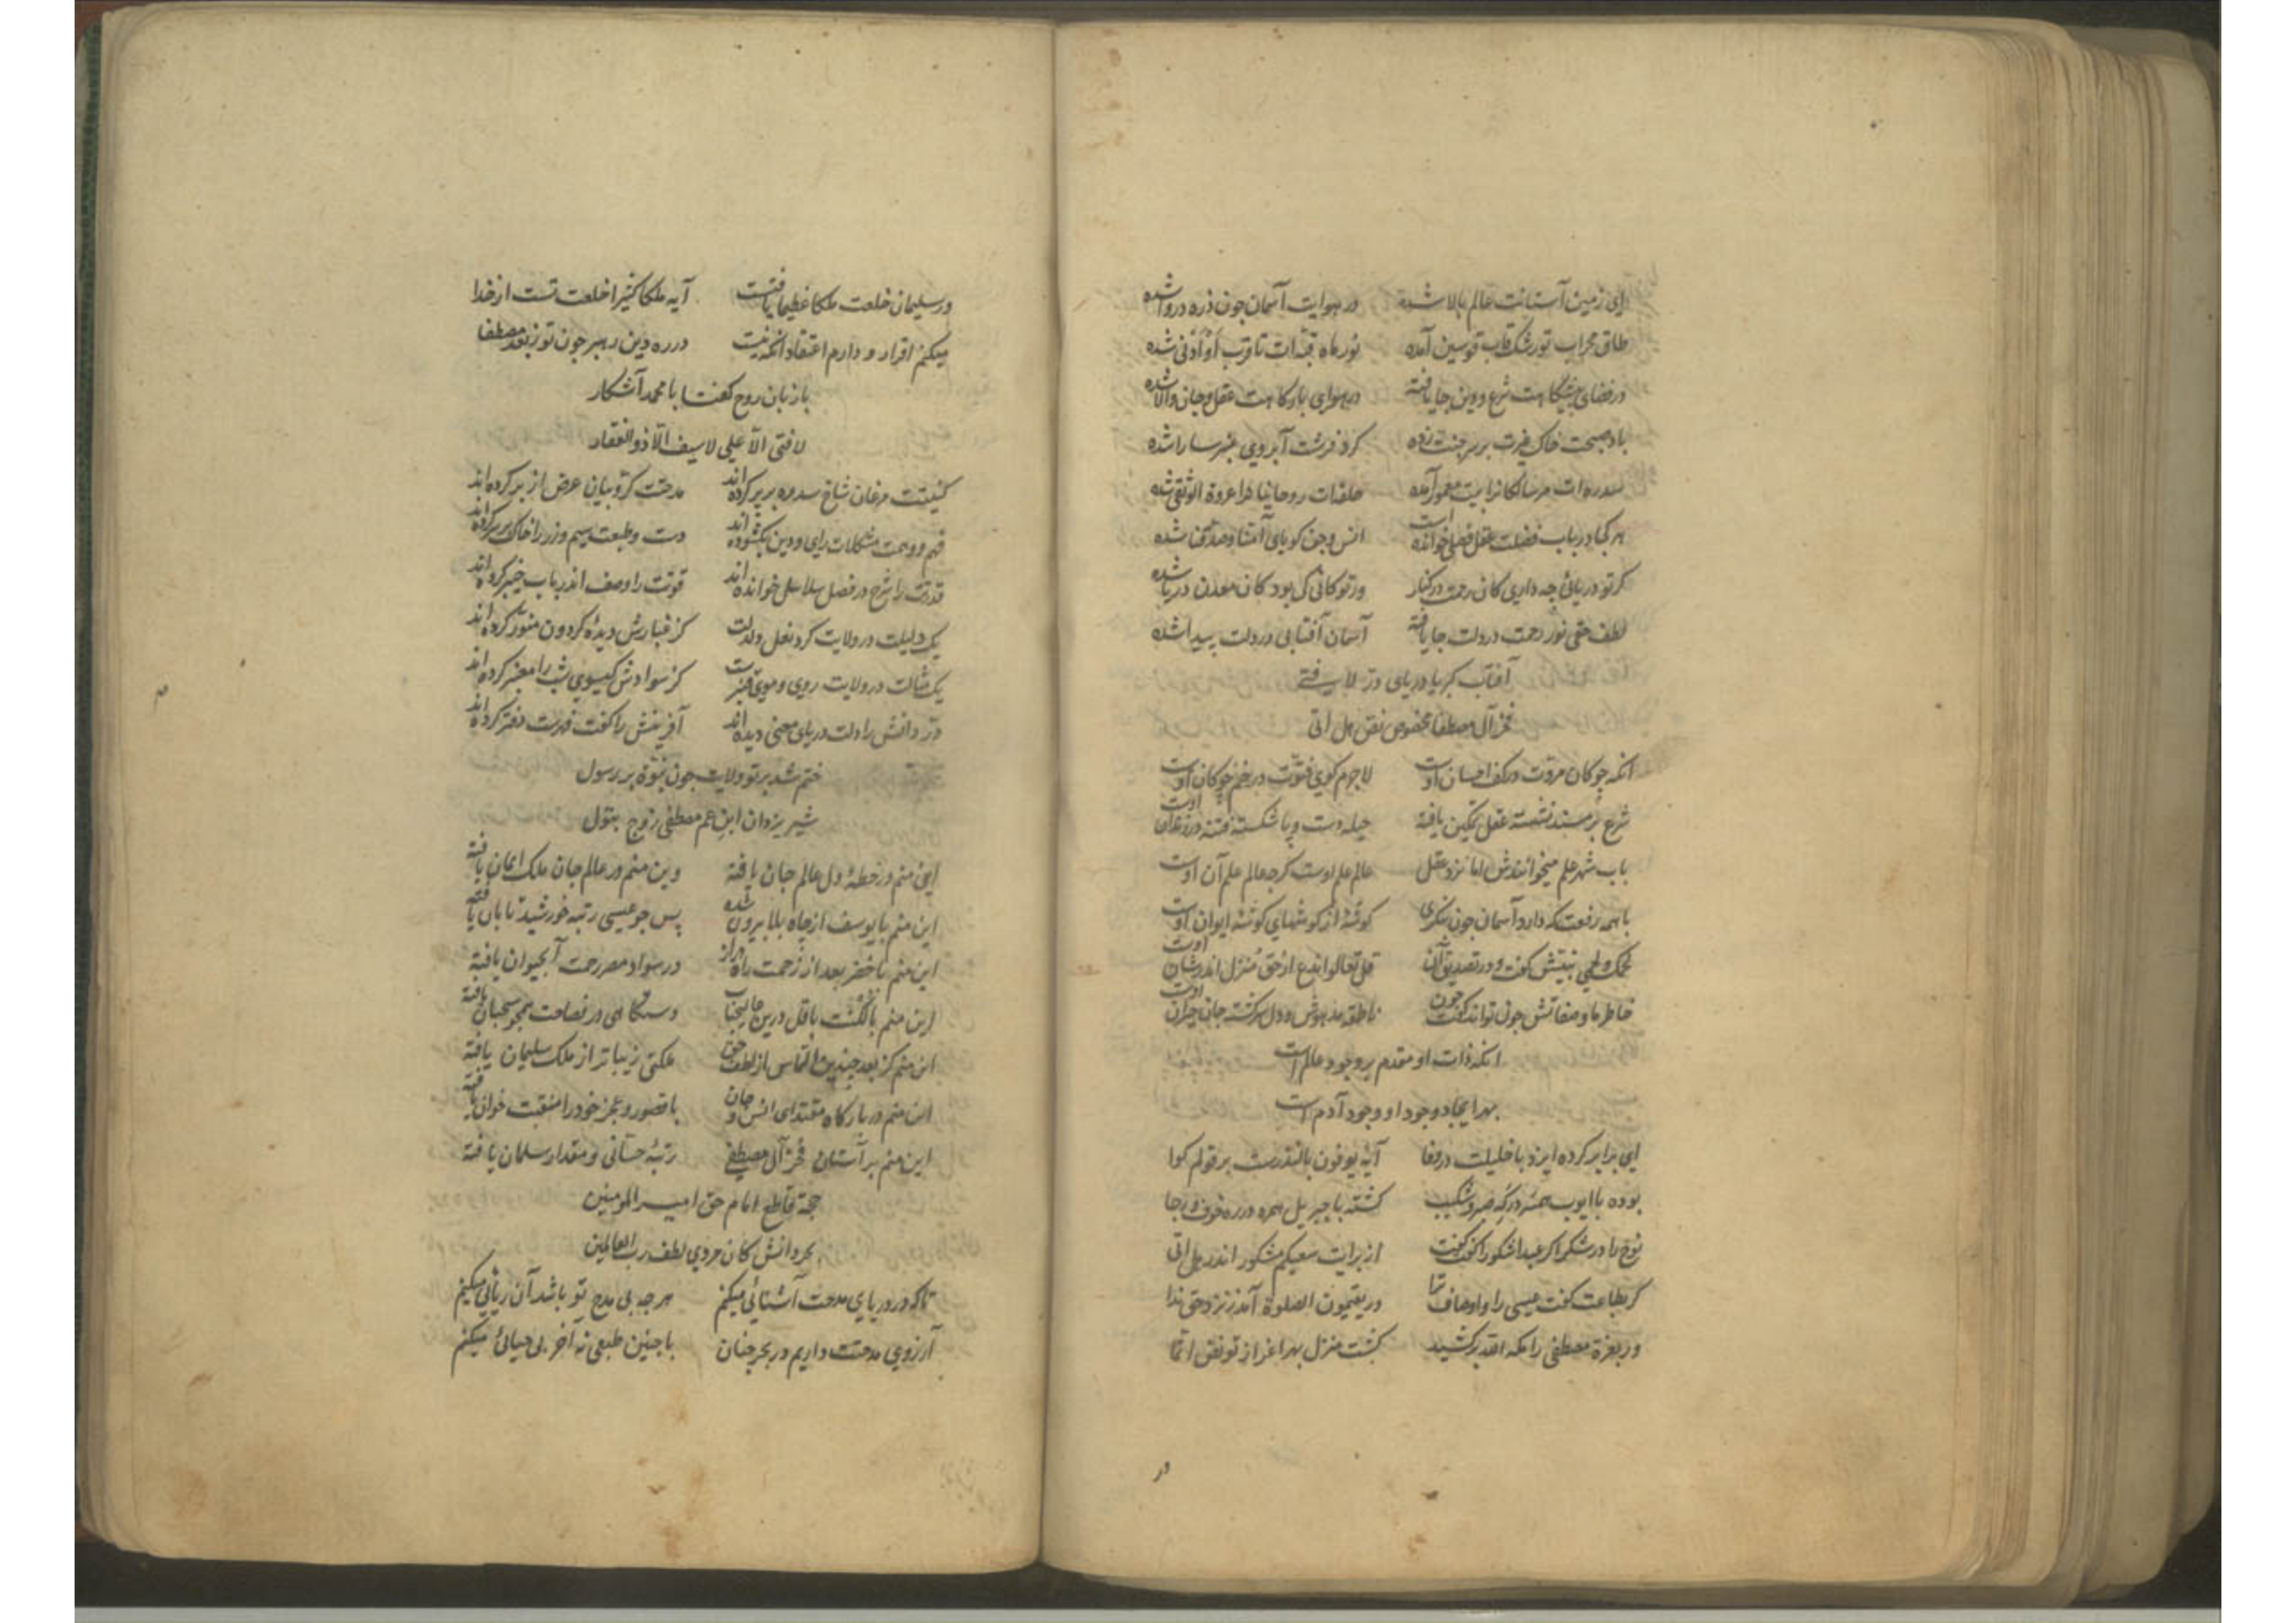 ای زمین آستانت عالم بالا شده در هوایت آسمان چون ذره دروا شده
طاق محراب تو رشک قاب قوسین آمده نور ماه قبه‌ات تا قرب او ادنی شده
در فضای پیشگاهت شرع و دین جا یافته در هوای بارگاهت عقل و جان والا شده
باد صبحت خاک غیرت بر سر جنت زده گرد فرشت آبروی عنبر سارا شده
سدره‌ات مر سالکانرا بیت معمور آمده حلقه‌ات روحانیانرا عروة الوثقی شده
هر کجا در باب فضلت عقل فصلی خوانده است انس و جن گویای آمنا و صدقنا شده
گر تو دریائی چه داری کان رحمت در کنار ور تو کانی کی بود کان معدن دریا شده
لطف حق نور رحمت در دلت جا یافته آسمان آفتابی در دلت پیدا شده
آفتاب کبریا دریای در لافتی
فخر آل مصطفا مخصوص نص هل اتی
انکه چوکان مروت در کف احسان اوست لاجرم کوی فتوت در خم چوکان اوست
شرع بر مسند نشسته عقل تمکین یافته حیله دست و پا شکسته فتنه در زندان اوست
باب شهر علم میخوانندش اما نزد عقل عالم علم اوست کرچه عالم علم آن اوست
با همه رفعت که دارد آسمان چون بنکری کوشهٔ از کوشهای کوشهٔ ایوان اوست
لحمک لحمی نبیش گفت و در تصدیق آن قل تعالوا ندع از حق منزل اندر شان اوست
خاطر ما وصفاتش چون تواند گفت چون ناطقه مدهوش و دل سرکشته جان حیران اوست
انکه ذات او مقدم بر وجود عالم است
بهر ایجاد وجود او وجود آدم است
ای برابر کرده ایزد با خلیلت در وفا آیهٔ یوفون بالنذرست بر قولم کوا
بوده با ایوب همسر درگه صبر و شکیب کشته با جبریل همره در ره خوف و رجا
نوح را در شکر اکر عبدا شکورا گفت از برایت سعیکم مشکور اندر هل اتی
کر بطاعت گفت عیسی را و اوصاف ترا در یقیمون الصلوة آمد ز نزد حق ندا
ور بعزة مصطفی را ملکه اقدر کشید کشت منزل بهر اعزاز تو نص انما
در
در سلیمان خلعت ملکا عظیما یافتست آیه ملکا کبیرا خلعت تست از خدا
میکنم اقرار و دارم اعتقاد انکه نیست در ره دین رهبر چون تو ز بعد مصطفا
با زبان روح گفتا با محمد آشکار
لا فتی الا علی لا سیف الا ذو الفقار
کنیتت مرغان شاخ سدره بر پر کرده‌اند مدحتت کروبیان عرض از بر کرده‌اند
فهم و وهمت مشکلات رای و دین بکشوده‌اند دست و طبعت سیم و زر را خاک بر سر کرده‌اند
قدرتت را شرح در فصل سلاسل خوانده‌اند قوتت را وصف اندر باب خیبر کرده‌اند
یک دلیلت در ولایت کرد نعل دلدلت کز غبارش دیدهٔ کردون منور کرده‌اند
یک مثالت در ولایت روی و موی قنبرست کز سوادش کیسوی شب را معنبر کرده‌اند
در دانش را دلت دریای معنی دیده‌اند آفرینش را کفت فهرست دفتر کرده‌اند
ختم شد بر تو ولایت چون نبوة بر رسول
شیر یزدان ابن عم مصطفی زوج بتول
این منم در خطهٔ دل عالم جان یافته وین منم در عالم جان ملک ایمان یافته
این منم با یوسف از چاه بلا بیرون شده پس چو عیسی رتبه خورشید تابان یافته
این منم با خضر بعد از زحمت راه دراز در سواد مصر رحمت آب حیوان یافته
این منم بالکنت باقل درین عالیجناب دستگاهی در فصاحت همچو سحبان یافته
این منم کز بعد چندین التماس از لطف حق ملکتی زیباتر از ملک سلیمان یافته
این منم در بارگاه مقتدای انس و جان با قصور و عجز خود را منقبت خوان یافته
این منم بر آستان فخر آل مصطفی رتبهٔ حسانی و مقدار سلمان یافته
حجة قاطع امام حق امیر المومنین
بحر دانش کان مردی لطف رب العالمین
تا که در دریای مدحت آشنائی میکنم هر چه بی مدح تو باشد آن ریائی میکنم
آرزوی مدحتت داریم در بحر جنان با چنین طبعی نه آخر بی حیائی میکنم